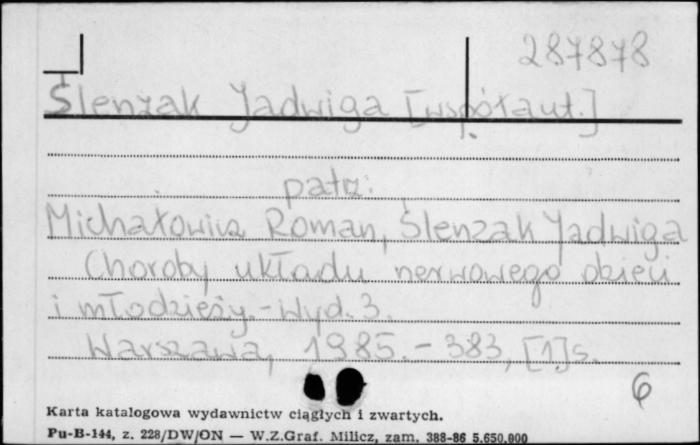 287878
Ślenzak Jadwiga [współaut.]
patrz:
Michałowicz Roman, Ślenzak Jadwiga
Choroby układu nerwowego dzieci
i młodzieży. - Wyd. 3.
Warszawa, 1985. - 383, [1] s.
6
Karta katalogowa wydawnictw ciągłych i zwartych.
Pu-B-144, z. 228/DW/ON — W.Z.Graf. Milicz, zam. 388-86 5.650.000